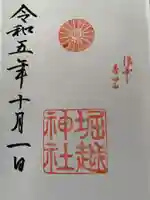 堀越
神社
令和五年十月一日